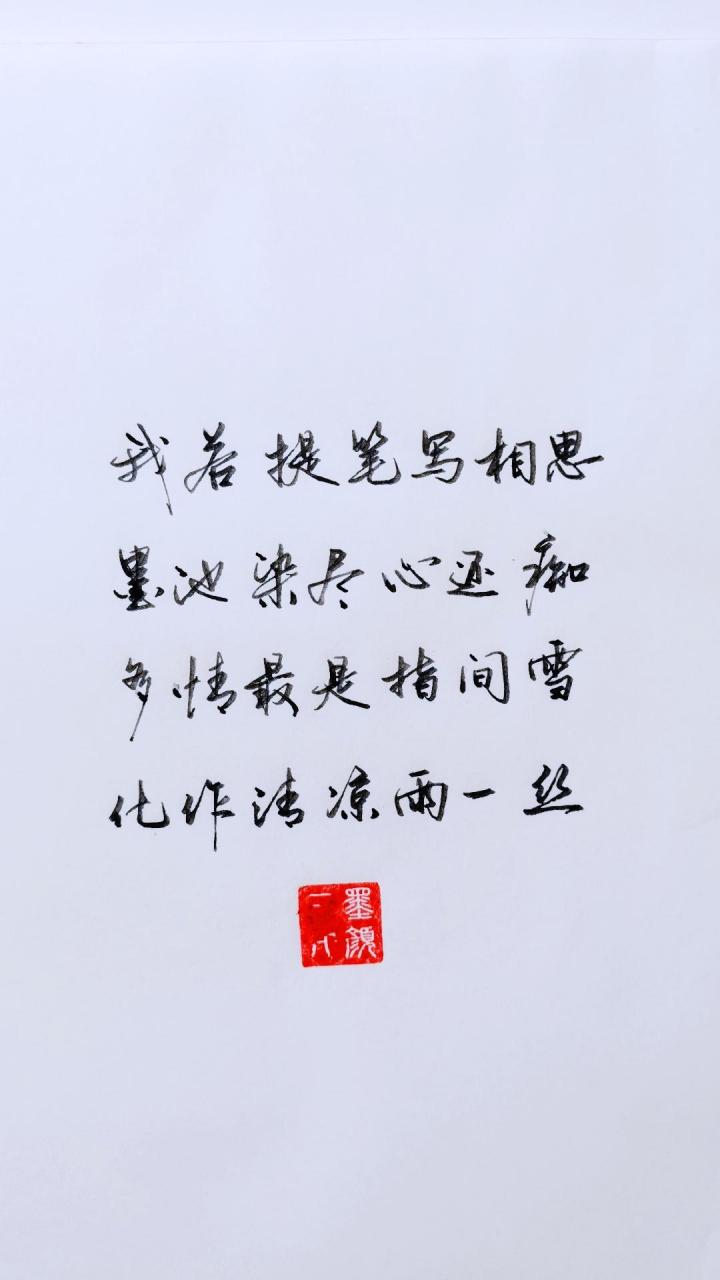 我若提笔写相思
墨池染尽心还痴
多情最是指间雪
化作清凉雨一丝
墨颜